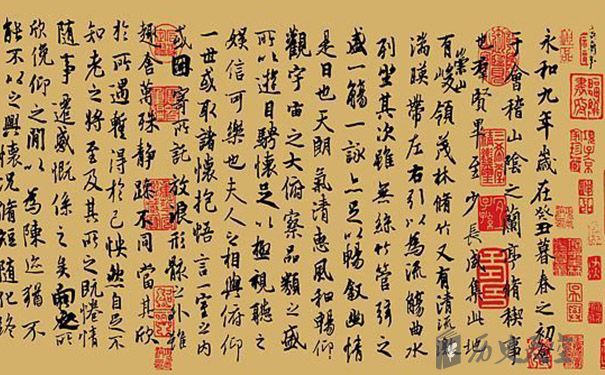 永和九年歲在癸丑暮春之初會
于會稽山陰之蘭亭脩稧事
也群賢畢至少長咸集此地
有崇山峻領茂林脩竹又有清流激
湍暎帶左右引以為流觴曲水
列坐其次雖無絲竹管弦之
盛一觴一詠亦足以暢敘幽情
是日也天朗氣清惠風和暢仰
觀宇宙之大俯察品類之盛
所以遊目騁懷足以極視聽之
娛信可樂也夫人之相與俯仰
一世或取諸懷抱悟言一室之內
或因寄所託放浪形骸之外雖
趣舍萬殊靜躁不同當其欣
於所遇蹔得於己怏然自足不
知老之將至及其所之既惓情
隨事遷感慨係之矣向之所
欣俛仰之閒以為陳迹猶不
能不以之興懷況脩短隨化終
历史